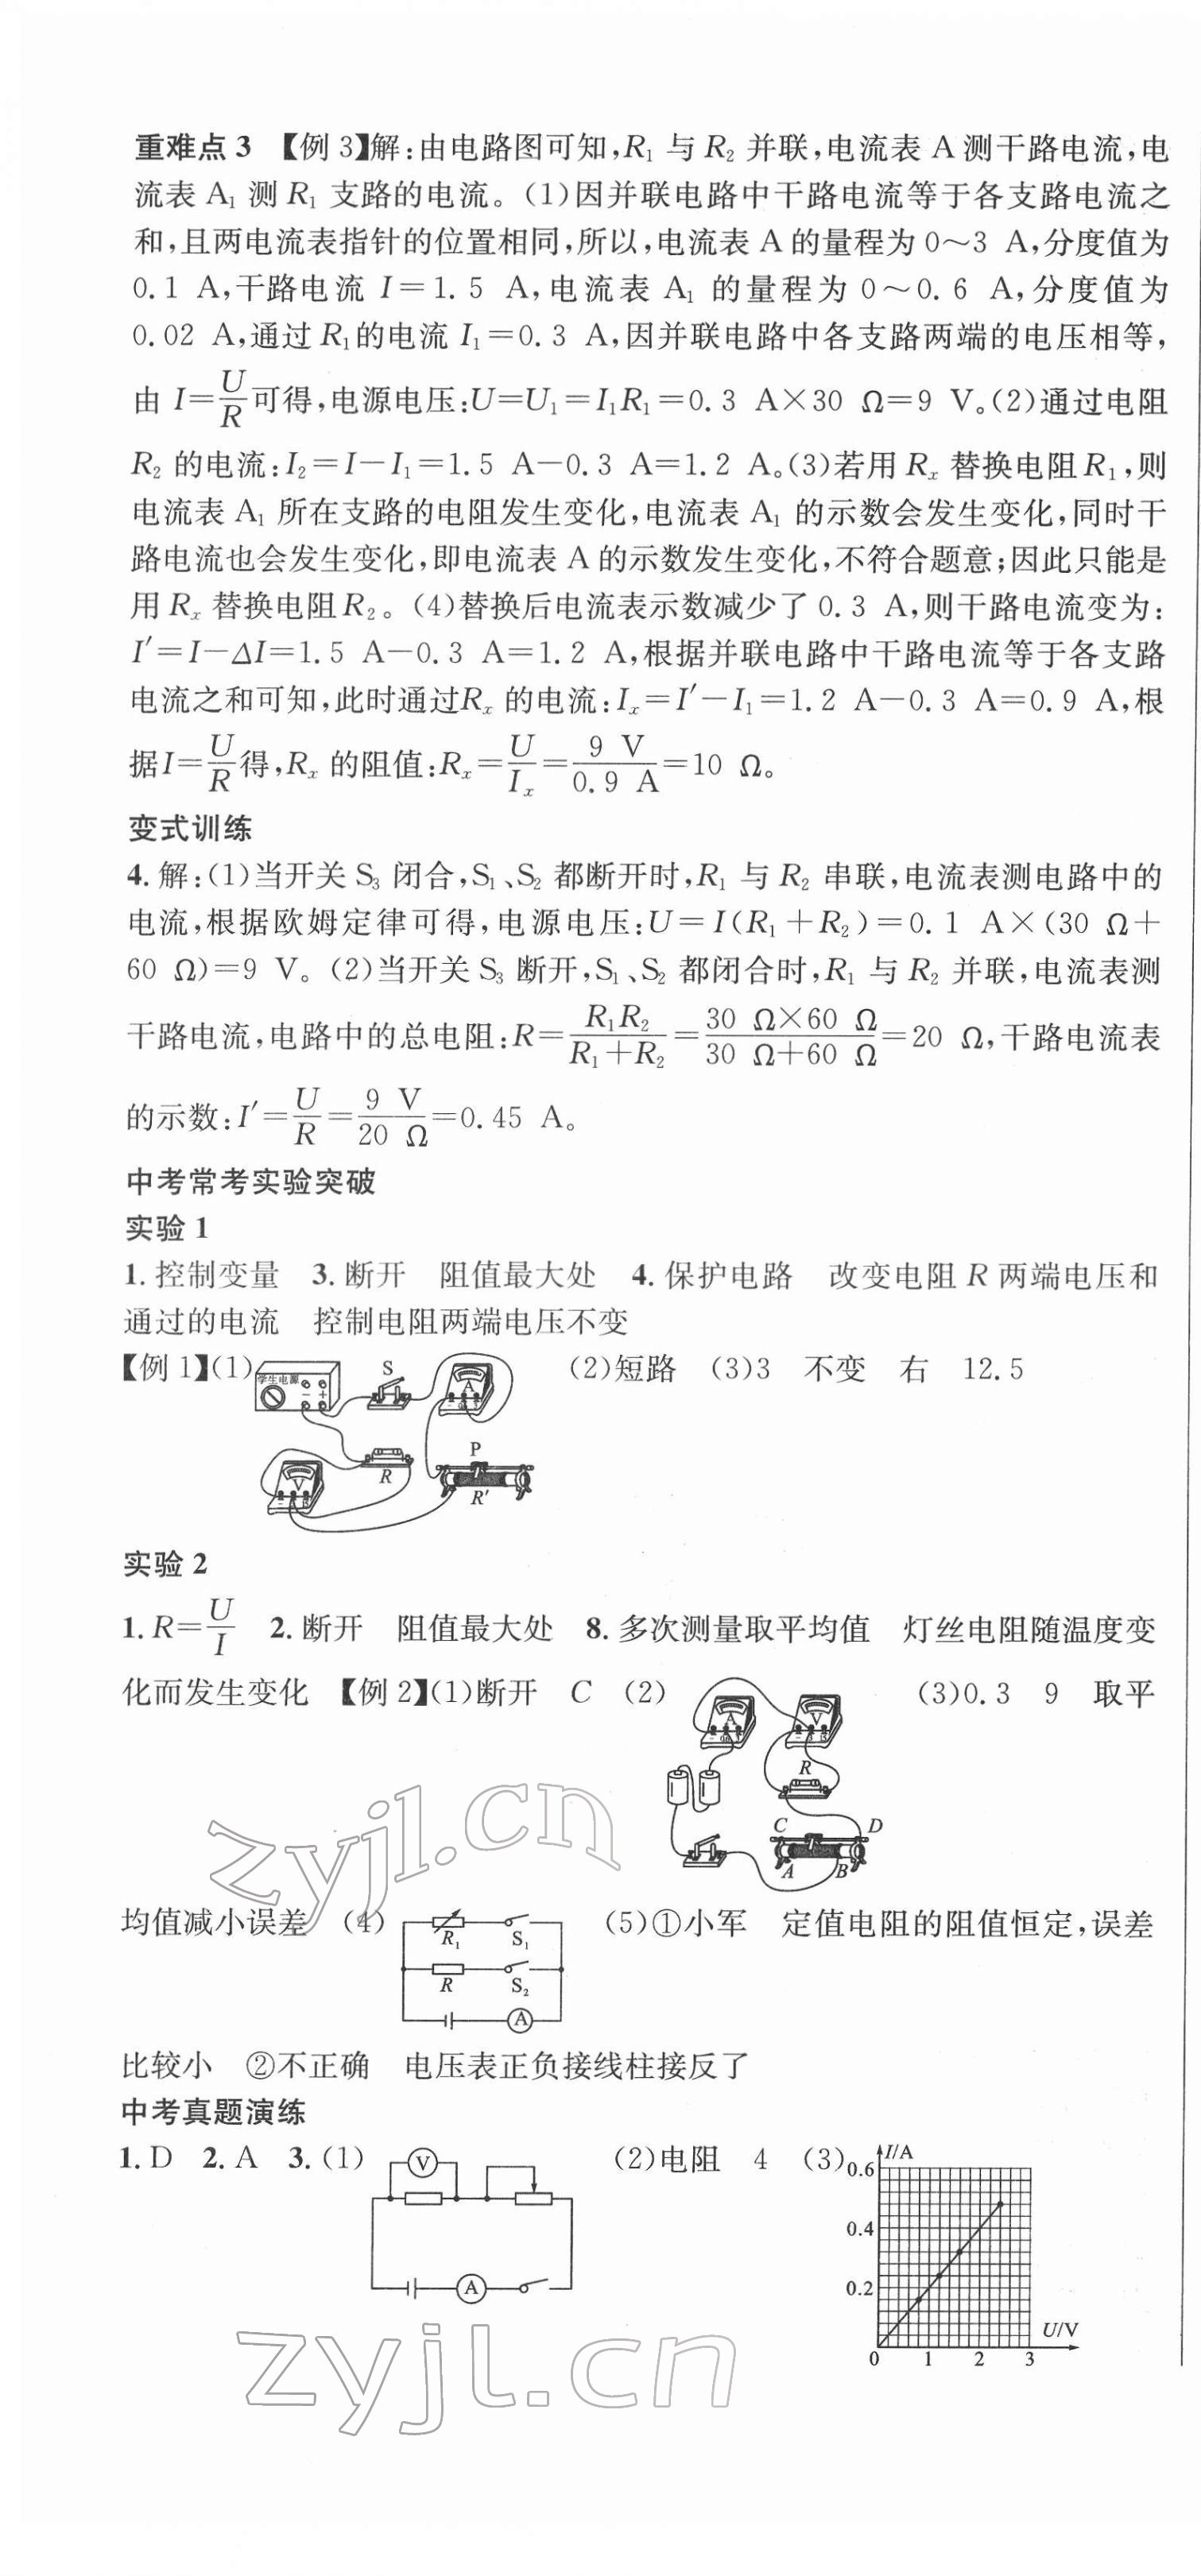 重难点 3 【例 3】解:由电路图可知,R₁ 与 R₂ 并联,电流表 A 测干路电流,电
流表 A₁ 测 R₁ 支路的电流。(1)因并联电路中干路电流等于各支路电流之
和,且两电流表指针的位置相同,所以,电流表 A 的量程为 0～3 A,分度值为
0.1 A,干路电流 I=1.5 A,电流表 A₁ 的量程为 0～0.6 A,分度值为
0.02 A,通过 R₁的电流 I₁=0.3 A,因并联电路中各支路两端的电压相等,
由 I=U/R可得,电源电压:U=U₁=I₁R₁=0.3 A×30 Ω=9 V。(2)通过电阻
R₂ 的电流:I₂=I-I₁=1.5 A-0.3 A=1.2 A。(3)若用 Rₓ 替换电阻R₁,则
电流表 A₁ 所在支路的电阻发生变化,电流表 A₁ 的示数会发生变化,同时干
路电流也会发生变化,即电流表 A 的示数发生变化,不符合题意;因此只能是
用 Rₓ 替换电阻R₂。(4)替换后电流表示数减少了 0.3 A,则干路电流变为:
I′=I-ΔI=1.5 A-0.3 A=1.2 A,根据并联电路中干路电流等于各支路
电流之和可知,此时通过Rₓ 的电流:Iₓ=I′-I₁=1.2 A-0.3 A=0.9 A,根
据I=U/R得,Rₓ 的阻值:Rₓ=U/Iₓ=9 V/0.9 A=10 Ω。
变式训练
4. 解:(1)当开关 S₃ 闭合,S₁、S₂ 都断开时,R₁ 与 R₂ 串联,电流表测电路中的
电流,根据欧姆定律可得,电源电压:U=I(R₁+R₂)=0.1 A×(30 Ω+
60 Ω)=9 V。(2)当开关 S₃ 断开,S₁、S₂ 都闭合时,R₁ 与 R₂ 并联,电流表测
干路电流,电路中的总电阻:R=R₁R₂/(R₁+R₂)=(30 Ω×60 Ω)/(30 Ω+60 Ω)=20 Ω,干路电流表
的示数:I′=U/R=9 V/20 Ω=0.45 A。
中考常考实验突破
实验 1
1. 控制变量 3. 断开 阻值最大处 4. 保护电路 改变电阻 R 两端电压和
通过的电流 控制电阻两端电压不变
【例 1】(1) (2)短路 (3)3 不变 右 12.5
学生电源 S A
P
V R R′
实验 2
1. R=U/I 2. 断开 阻值最大处 8. 多次测量取平均值 灯丝电阻随温度变
化而发生变化 【例 2】(1)断开 C (2) (3)0.3 9 取平
A V
R
C D
A B
均值减小误差 (4) (5)①小军 定值电阻的阻值恒定,误差
R₁ S₁
R S₂
A
比较小 ②不正确 电压表正负接线柱接反了
中考真题演练
1. D 2. A 3. (1) (2)电阻 4 (3)
V
A
I/A
0.6
0.4
0.2
U/V
0 1 2 3
zyjl.cn
zyjl.cn